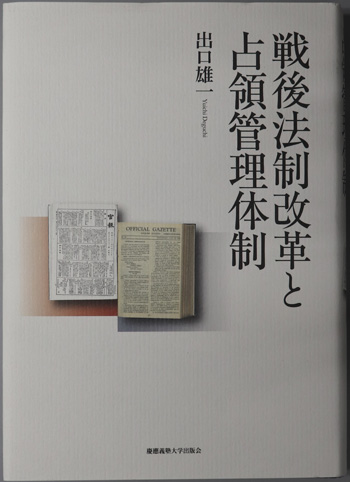 戦後法制改革と
占領管理体制
出口雄一
Yuichi Deguchi
官報
OFFICIAL GAZETTE
慶應義塾大学出版会